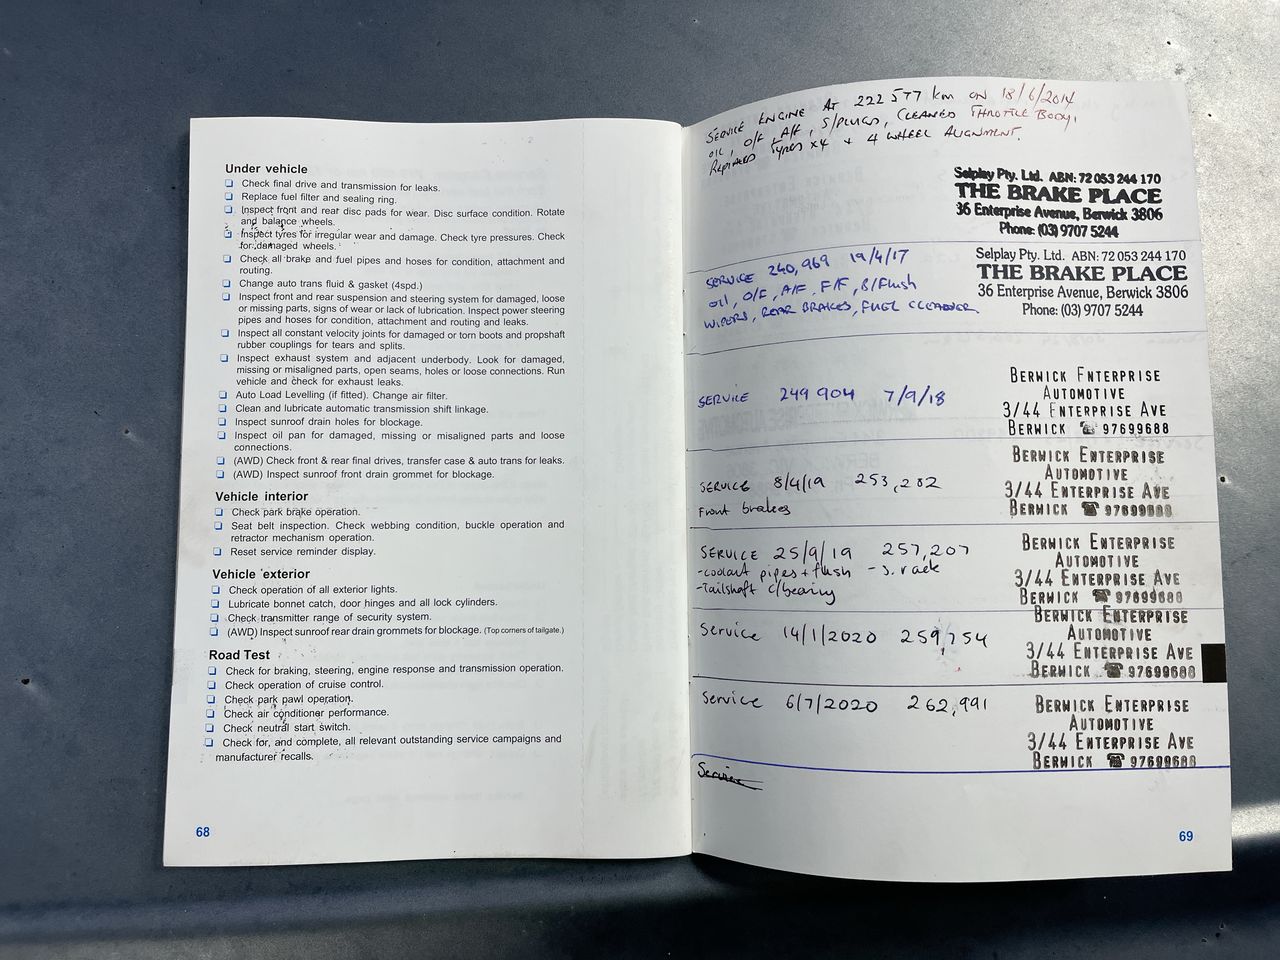 Under vehicle
Check final drive and transmission for leaks.
Replace fuel filter and sealing ring.
Inspect front and rear disc pads for wear. Disc surface condition. Rotate
and balance wheels.
Inspect tyres for irregular wear and damage. Check tyre pressures. Check
for damaged wheels.
Check all brake and fuel pipes and hoses for condition, attachment and
routing.
Change auto trans fluid & gasket (4spd.)
Inspect front and rear suspension and steering system for damaged, loose
or missing parts, signs of wear or lack of lubrication. Inspect power steering
pipes and hoses for condition, attachment and routing and leaks.
Inspect all constant velocity joints for damaged or torn boots and propshaft
rubber couplings for tears and splits.
Inspect exhaust system and adjacent underbody. Look for damaged,
missing or misaligned parts, open seams, holes or loose connections. Run
vehicle and check for exhaust leaks.
Auto Load Levelling (if fitted). Change air filter.
Clean and lubricate automatic transmission shift linkage.
Inspect sunroof drain holes for blockage.
Inspect oil pan for damaged, missing or misaligned parts and loose
connections.
(AWD) Check front & rear final drives, transfer case & auto trans for leaks.
(AWD) Inspect sunroof front drain grommet for blockage.
Vehicle interior
Check park brake operation.
Seat belt inspection. Check webbing condition, buckle operation and
retractor mechanism operation.
Reset service reminder display.
Vehicle exterior
Check operation of all exterior lights.
Lubricate bonnet catch, door hinges and all lock cylinders.
Check transmitter range of security system.
(AWD) Inspect sunroof rear drain grommets for blockage. (Top corners of tailgate.)
Road Test
Check for braking, steering, engine response and transmission operation.
Check operation of cruise control.
Check park pawl operation.
Check air conditioner performance.
Check neutral start switch.
Check for, and complete, all relevant outstanding service campaigns and
manufacturer recalls.
68
SERVICE ENGINE AT 222 577 km ON 18/6/2014
OIL, O/F, A/F, S/PLUGS, CLEANED THROTTLE BODY,
REPLACED TYRES x4 + 4 WHEEL ALIGNMENT.
Selplay Pty. Ltd. ABN: 72 053 244 170
THE BRAKE PLACE
36 Enterprise Avenue, Berwick 3806
Phone: (03) 9707 5244
SERVICE 240,969 19/4/17
OIL, O/F, A/F, F/F, B/Flush
WIPERS, REAR BRAKES, FUEL CLEANER.
Selplay Pty. Ltd. ABN: 72 053 244 170
THE BRAKE PLACE
36 Enterprise Avenue, Berwick 3806
Phone: (03) 9707 5244
SERVICE 249 904 7/9/18
BERWICK ENTERPRISE
AUTOMOTIVE
3/44 ENTERPRISE AVE
BERWICK ☎ 97699688
SERVICE 8/4/19 253,282
Front brakes
BERWICK ENTERPRISE
AUTOMOTIVE
3/44 ENTERPRISE AVE
BERWICK ☎ 97699688
SERVICE 25/9/19 257,207
-coolant pipes + flush -S. rack
-Tailshaft c/bearing
BERWICK ENTERPRISE
AUTOMOTIVE
3/44 ENTERPRISE AVE
BERWICK ☎ 97699688
Service 14/1/2020 259,754
BERWICK ENTERPRISE
AUTOMOTIVE
3/44 ENTERPRISE AVE
BERWICK ☎ 97699688
Service 6/7/2020 262,991
BERWICK ENTERPRISE
AUTOMOTIVE
3/44 ENTERPRISE AVE
BERWICK ☎ 97699688
Service
69